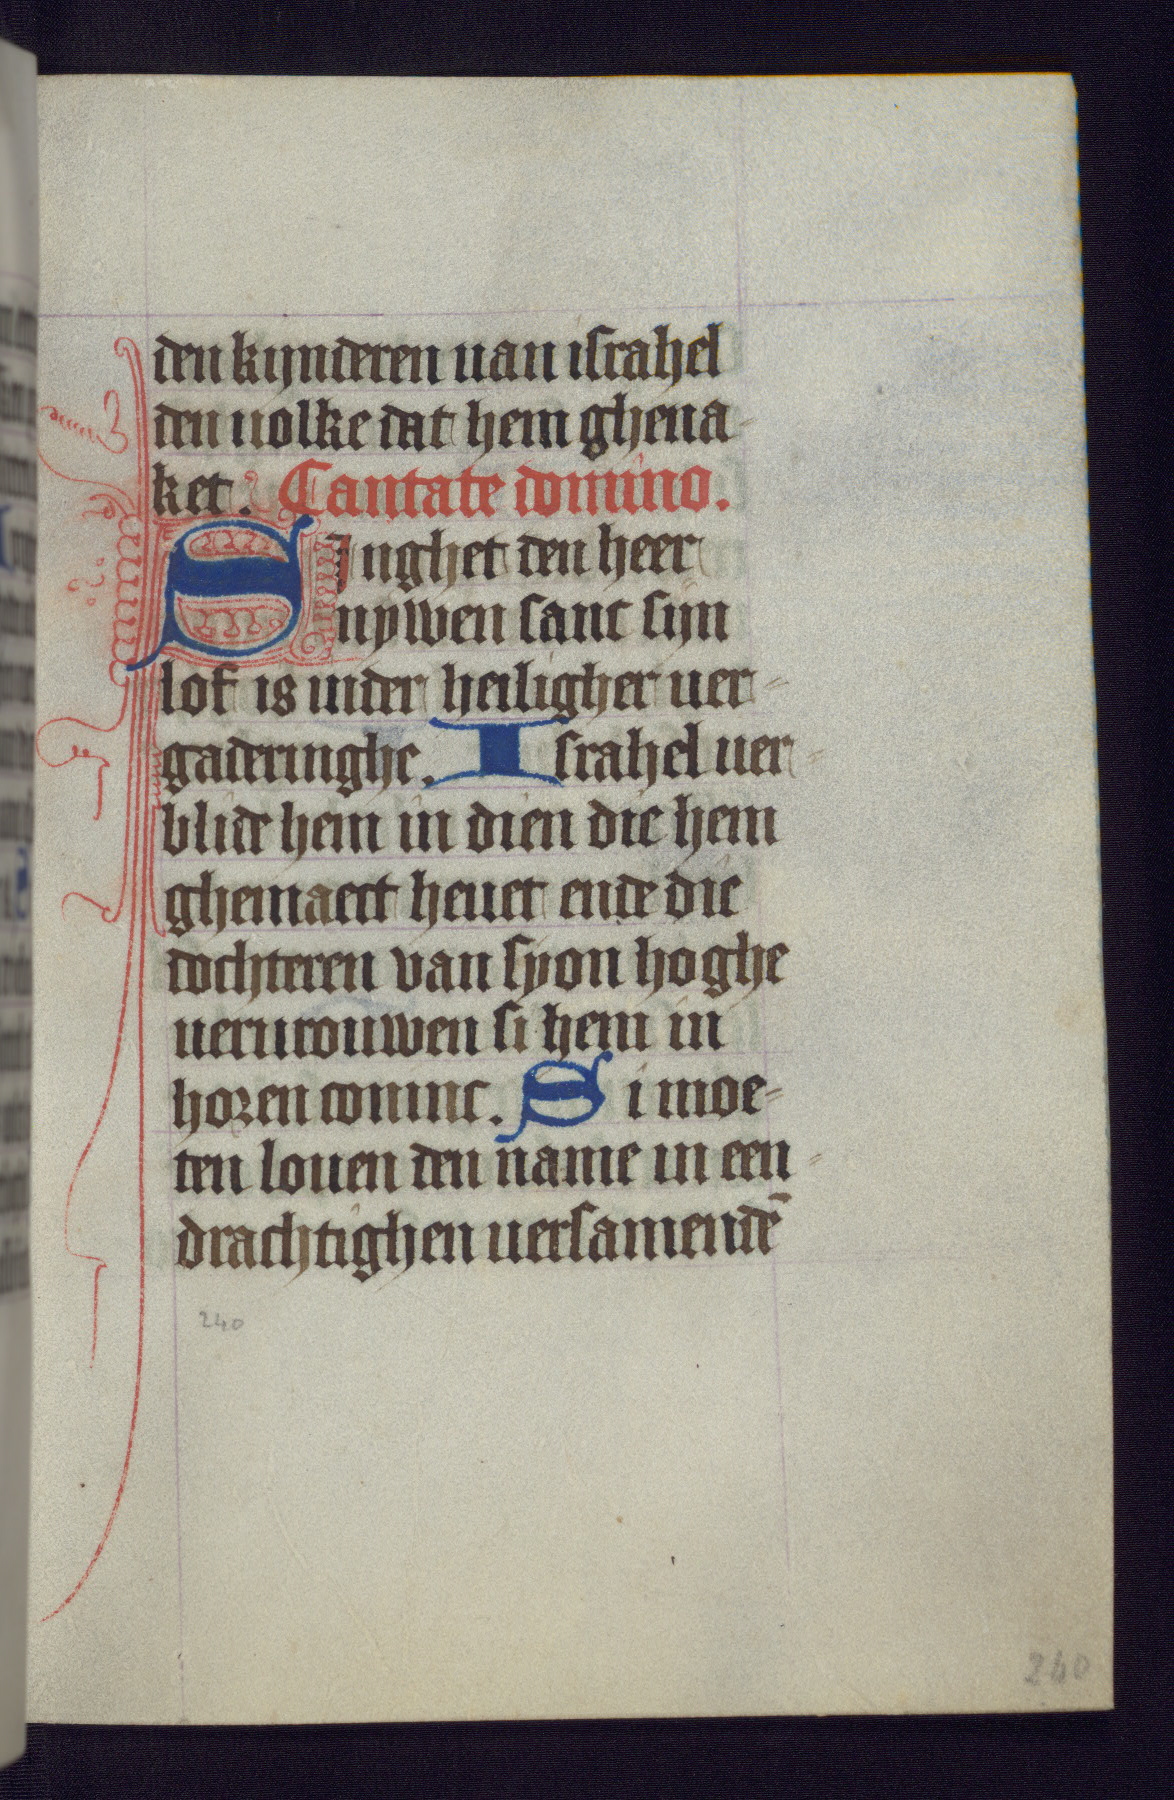 den kynderen uan israhel
den uolke dat hem ghena-
ket. Cantate domino.
Singhet den heer
nywen sanc sijn
lof is inder heiligher uer-
gaderinghe. Israhel uer-
blide hem in dien die hem
ghemaect heuet ende die
dochteren van syon hoghe
uerurouwen si hem in
horen coninc. Si moe-
ten louen den name in een-
drachtighen uersamendē
240
240